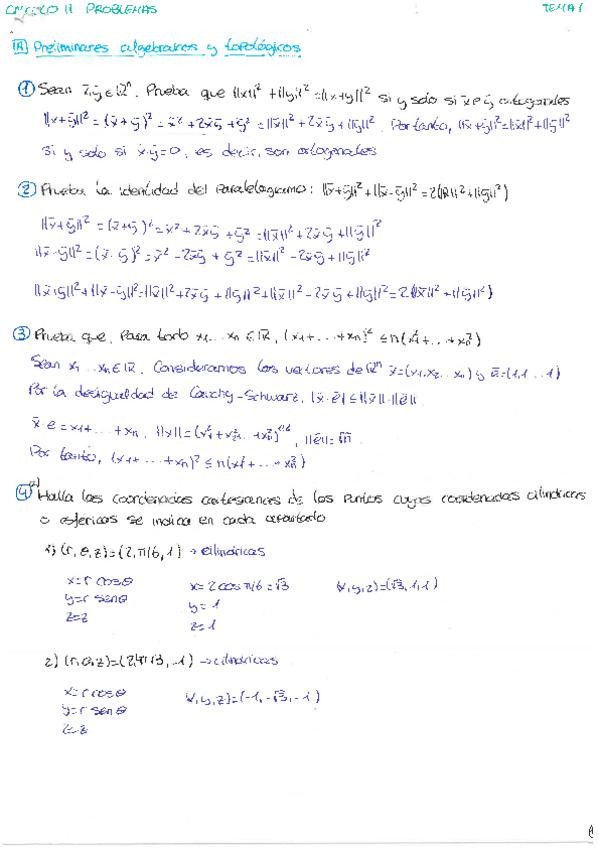 CÁLCULO II PROBLEMAS TEMA 1
1A Preliminares algebraicos y topológicos
① Sean x̄,ȳ ∈ ℝⁿ. Prueba que ||x||² + ||y||² = ||x+y||² si y solo si x̄ e ȳ ortogonales
||x+ȳ||² = (x̄+ȳ)² = x̄² + 2x̄ȳ + ȳ² = ||x̄||² + 2x̄ȳ + ||ȳ||². Por tanto, ||x̄+ȳ||² = ||x̄||² + ||ȳ||²
si y solo si x̄·ȳ=0, es decir, son ortogonales
② Prueba la identidad del paralelogramo: ||x̄+ȳ||² + ||x̄-ȳ||² = 2(||x̄||² + ||ȳ||²)
||x̄+ȳ||² = (x̄+ȳ)² = x̄² + 2x̄ȳ + ȳ² = ||x̄||² + 2x̄ȳ + ||ȳ||²
||x̄-ȳ||² = (x̄-ȳ)² = x̄² - 2x̄ȳ + ȳ² = ||x̄||² - 2x̄ȳ + ||ȳ||²
||x̄+ȳ||² + ||x̄-ȳ||² = ||x̄||² + 2x̄ȳ + ||ȳ||² + ||x̄||² - 2x̄ȳ + ||ȳ||² = 2(||x̄||² + ||ȳ||²)
③ Prueba que, para todo x₁...xₙ ∈ ℝ, (x₁+...+xₙ)² ≤ n(x₁²+...+xₙ²)
Sean x₁...xₙ ∈ ℝ. Consideramos los vectores de ℝⁿ x̄=(x₁,x₂...xₙ) y ē=(1,1...1)
Por la desigualdad de Cauchy-Schwarz, |x̄·ē| ≤ ||x̄||·||ē||
x̄·e = x₁+...+xₙ, ||x|| = (x₁²+x₂²...+xₙ²)^1/2, ||ē|| = √n
Por tanto, (x₁+...+xₙ)² ≤ n(x₁²+...+xₙ²)
④ a) Halla las coordenadas cartesianas de los puntos cuyas coordenadas cilíndricas
o esféricas se indica en cada apartado
1) (r,θ,z)=(2,π/6,1) → cilíndricas
x=r cosθ x=2cos π/6=√3 (x,y,z)=(√3,1,1)
y=r senθ y=1
z=z z=1
2) (r,θ,z)=(2,4π/3,-1) → cilíndricas
x=r cosθ (x,y,z)=(-1,-√3,-1)
y=r senθ
z=z